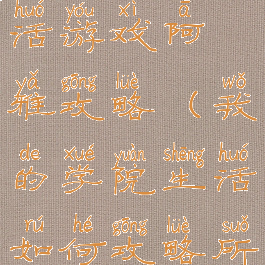 huó yóu xì ā
活游戏阿
yǎ gōng lüè wǒ
雅攻略（我
de xué yuàn shēng huó
的学院生活
rú hé gōng lüè suǒ
如何攻略所